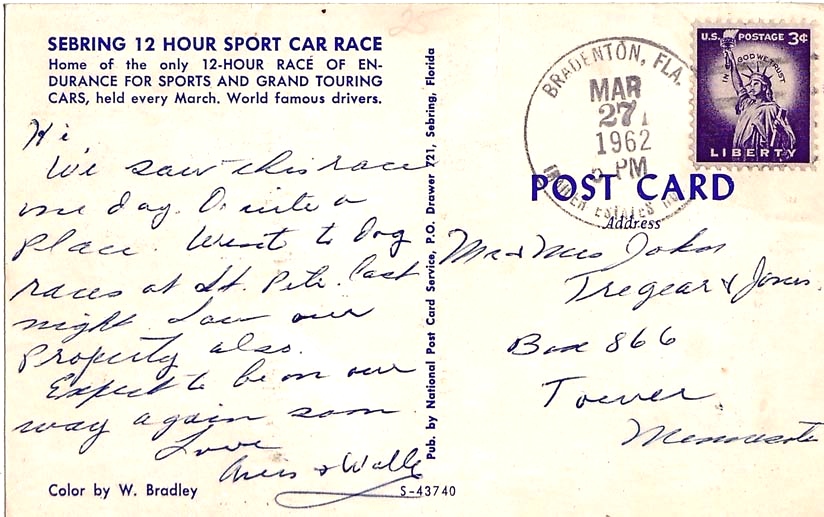 SEBRING 12 HOUR SPORT CAR RACE
Home of the only 12-HOUR RACE OF EN-
DURANCE FOR SPORTS AND GRAND TOURING
CARS, held every March. World famous drivers.
Hi
We saw this race
one day. Quite a
place. Went to Dog
races at St. Pete. last
night. Saw our
Property also.
Expect to be on our
way again soon
Love
& Walle
Color by W. Bradley
Pub. by National Post Card Service, P.O. Drawer 721, Sebring, Florida
S-43740
BRADENTON, FLA.
MAR
27
1962
PM
TRAILER ESTATES
U.S. POSTAGE 3¢
IN GOD WE TRUST
LIBERTY
POST CARD
Address
Mr & Mrs John
Tregear &
Box 866
Tower
Minnesota